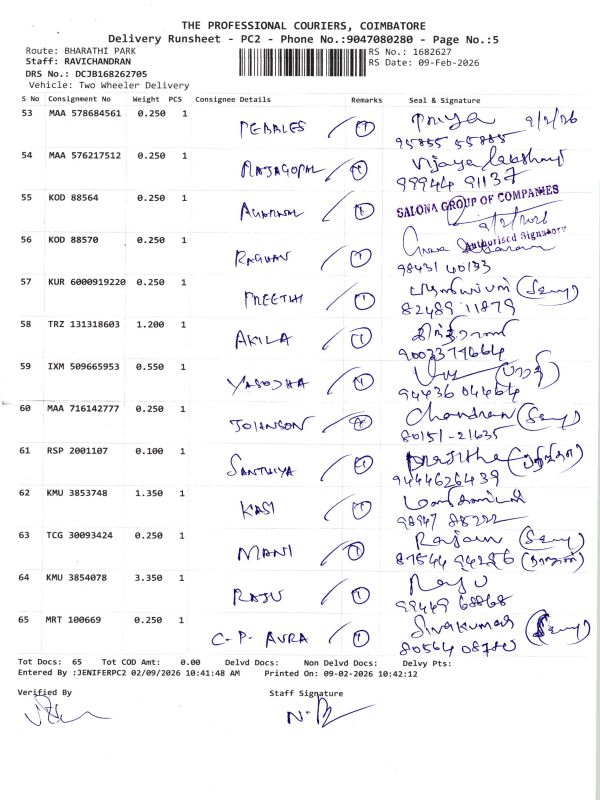 THE PROFESSIONAL COURIERS, COIMBATORE
Delivery Runsheet - PC2 - Phone No.:9047080280 - Page No.:5
Route: BHARATHI PARK RS No.: 1682627
Staff: RAVICHANDRAN RS Date: 09-Feb-2026
DRS No.: DCJB168262705
Vehicle: Two Wheeler Delivery
S No Consignment No Weight PCS Consignee Details Remarks Seal & Signature
53 MAA 578684561 0.250 1 PEBBLES 1 Priya 9/2/26
95855 55885
54 MAA 576217512 0.250 1 RAJAGOPAL 1 Vijaya lakshmi
99944 91137
55 KOD 88564 0.250 1 AGARWAL 1 SALONA GROUP OF COMPANIES
9/2/2026
Authorised Signatory
56 KOD 88570 0.250 1 RAGHAV 1
98431 40133
57 KUR 6000919220 0.250 1 PREETHI 1
82489 11879
58 TRZ 131318603 1.200 1 AKILA 1
59 IXM 509665953 0.550 1 YASODHA 1
94436 04464
60 MAA 716142777 0.250 1 JOHNSON Chandran
80151-21635
61 RSP 2001107 0.100 1 SANTHIYA 1
9444626439
62 KMU 3853748 1.350 1 KASI 1
98947 88222
63 TCG 30093424 0.250 1 MANI 1
87544 94286
64 KMU 3854078 3.350 1 RAJU 1 Raju
99449 68868
65 MRT 100669 0.250 1 C.P. AURA 1 Sivakumar
Tot Docs: 65 Tot COD Amt: 0.00 Delvd Docs: Non Delvd Docs: Delvy Pts:
Entered By :JENIFERPC2 02/09/2026 10:41:48 AM Printed On: 09-02-2026 10:42:12
Verified By Staff Signature